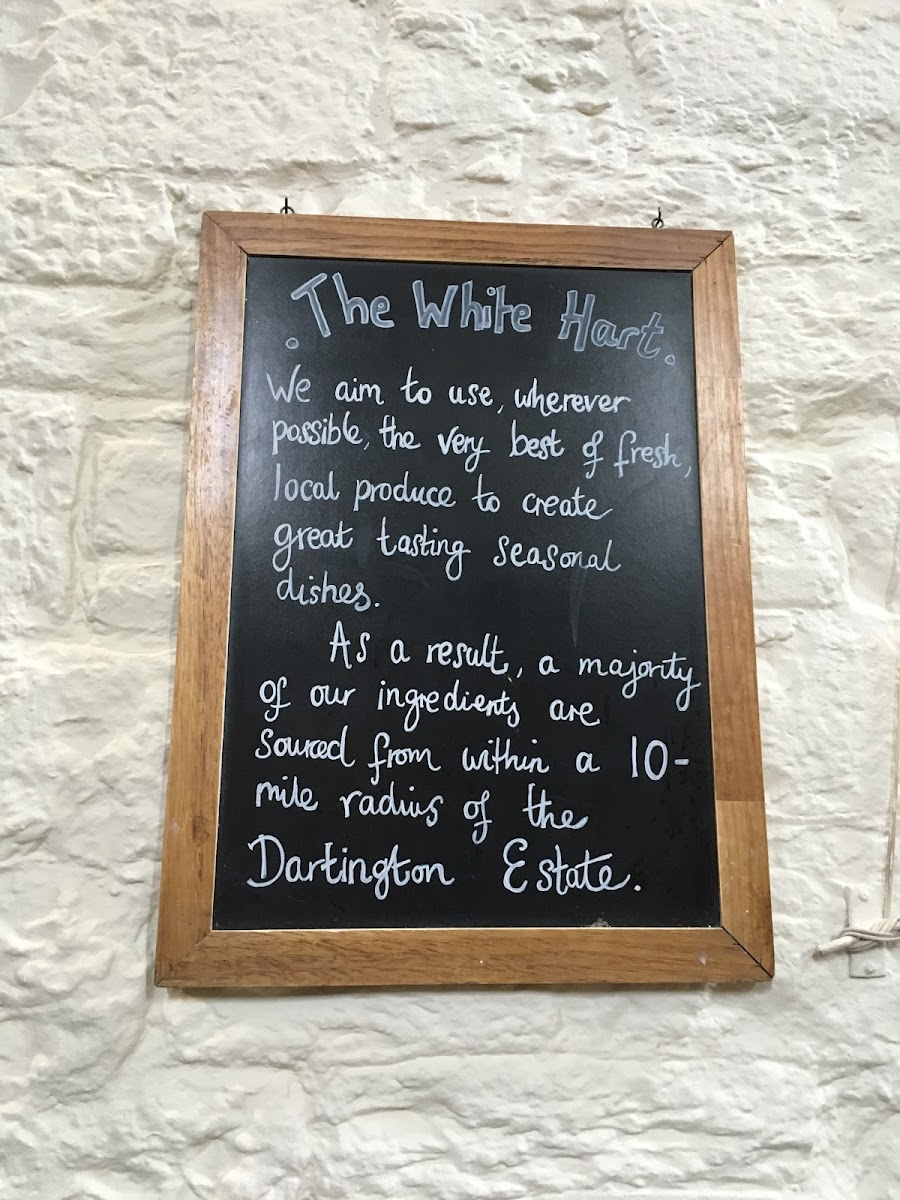 . The White Hart .
We aim to use, wherever
possible, the very best of fresh,
local produce to create
great tasting seasonal
dishes.
As a result, a majority
of our ingredients are
sourced from within a 10-
mile radius of the
Dartington Estate.